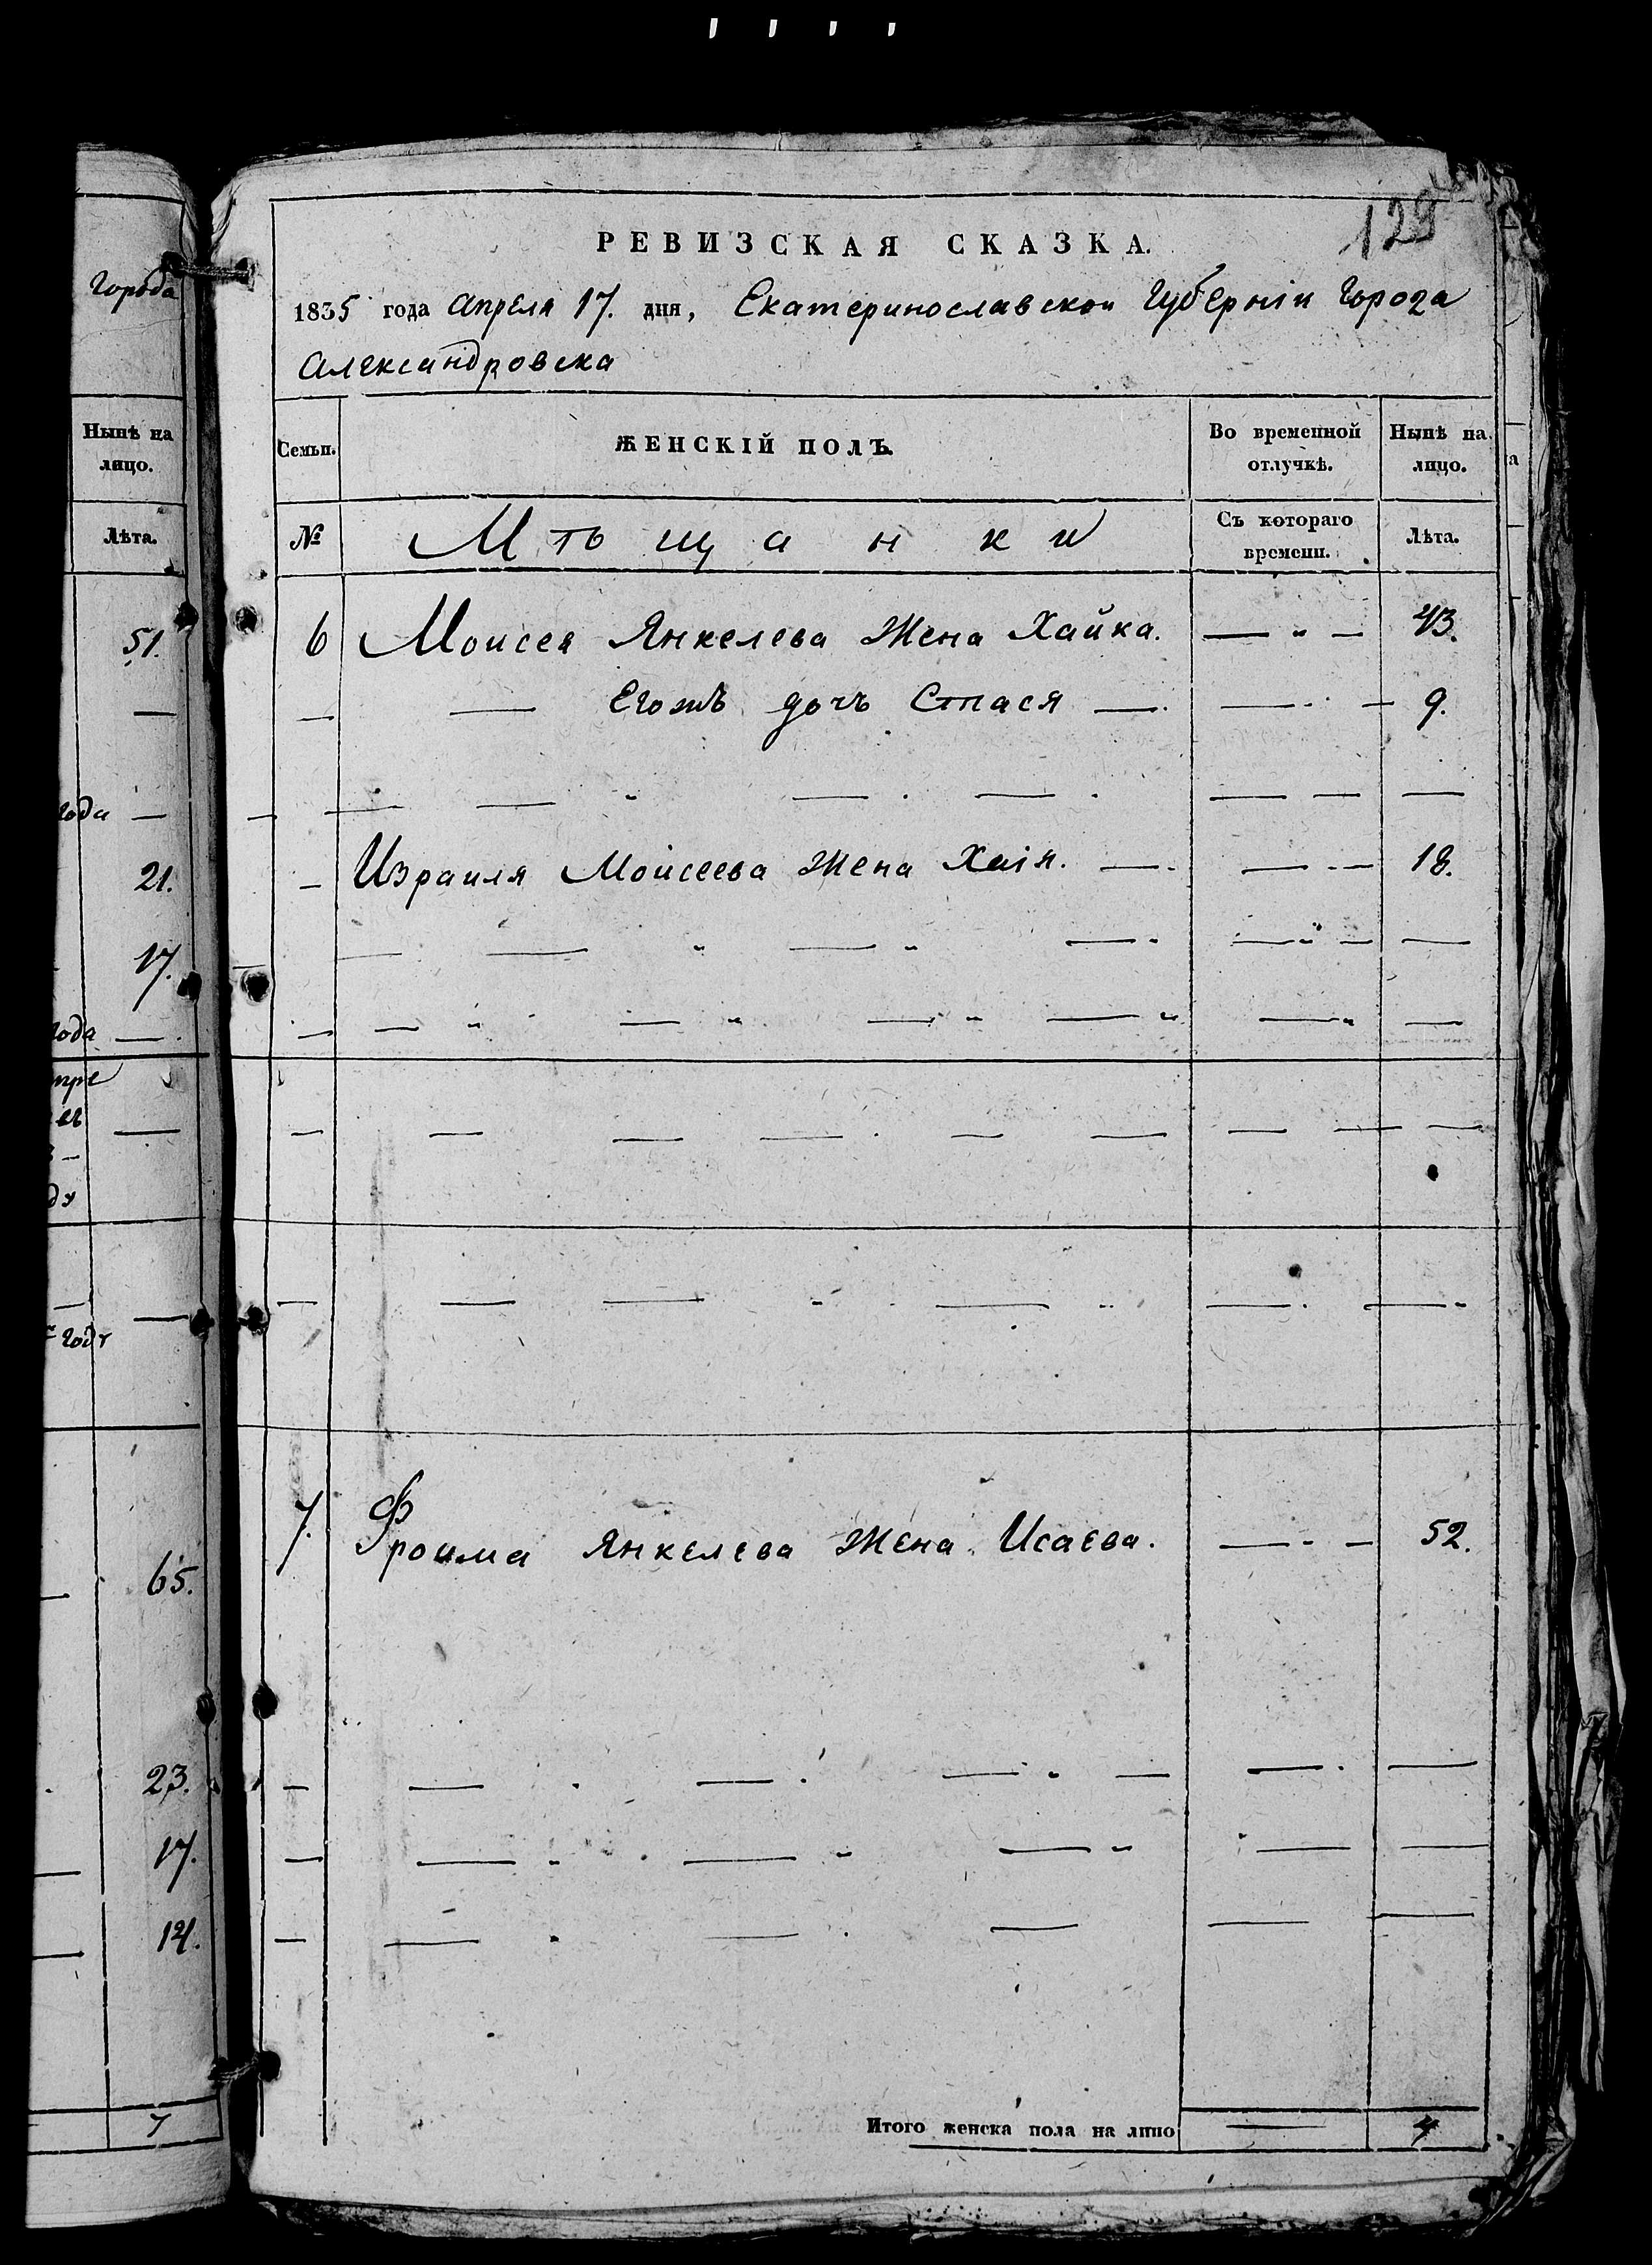 129
РЕВИЗСКАЯ СКАЗКА.
1835 года Апреля 17. дня, Екатеринославской Губернiи Города
Александровска
Города
Нынѣ на лицо.
Лѣта.
51.
года
21.
17.
года
65.
23.
17.
14.
7
Семьи. ЖЕНСКІЙ ПОЛЪ. Во временной отлучкѣ. Нынѣ на лицо.
№ Мѣщанки Съ котораго времени. Лѣта.
6 Моисея Янкелева Жена Хайка. 43.
Егожъ дочъ Стася 9.
Израиля Моисеева Жена Хаiя. 18.
7. Фроима Янкелева Жена Исаева. 52.
Итого женска пола на лицо 4